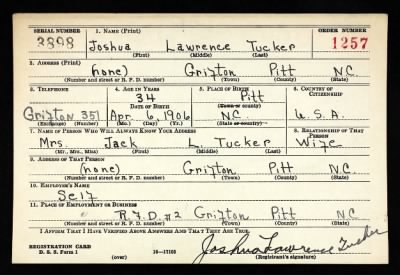 SERIAL NUMBER 1. NAME (Print) ORDER NUMBER
3898 Joshua Lawrence Tucker 1257
(First) (Middle) (Last)
2. ADDRESS (Print)
(none) Grifton Pitt N.C.
(Number and street or R. F. D. number) (Town) (County) (State)
3. TELEPHONE 4. AGE IN YEARS 5. PLACE OF BIRTH 6. COUNTRY OF CITIZENSHIP
34 Pitt
DATE OF BIRTH (Town or county)
Grifton 351 Apr. 6, 1906 N.C. U.S.A.
(Exchange) (Number) (Mo.) (Day) (Yr.) (State or country)
7. NAME OF PERSON WHO WILL ALWAYS KNOW YOUR ADDRESS 8. RELATIONSHIP OF THAT PERSON
Mrs. Jack L. Tucker Wife
(Mr., Mrs., Miss) (First) (Middle) (Last)
9. ADDRESS OF THAT PERSON
(none) Grifton Pitt N.C.
(Number and street or R. F. D. number) (Town) (County) (State)
10. EMPLOYER'S NAME
Self
11. PLACE OF EMPLOYMENT OR BUSINESS
R.F.D. #2 Grifton Pitt N.C.
(Number and street or R. F. D. number) (Town) (County) (State)
I AFFIRM THAT I HAVE VERIFIED ABOVE ANSWERS AND THAT THEY ARE TRUE.
REGISTRATION CARD Joshua Lawrence Tucker
D. S. S. Form 1 (over) 16—17105 (Registrant's signature)